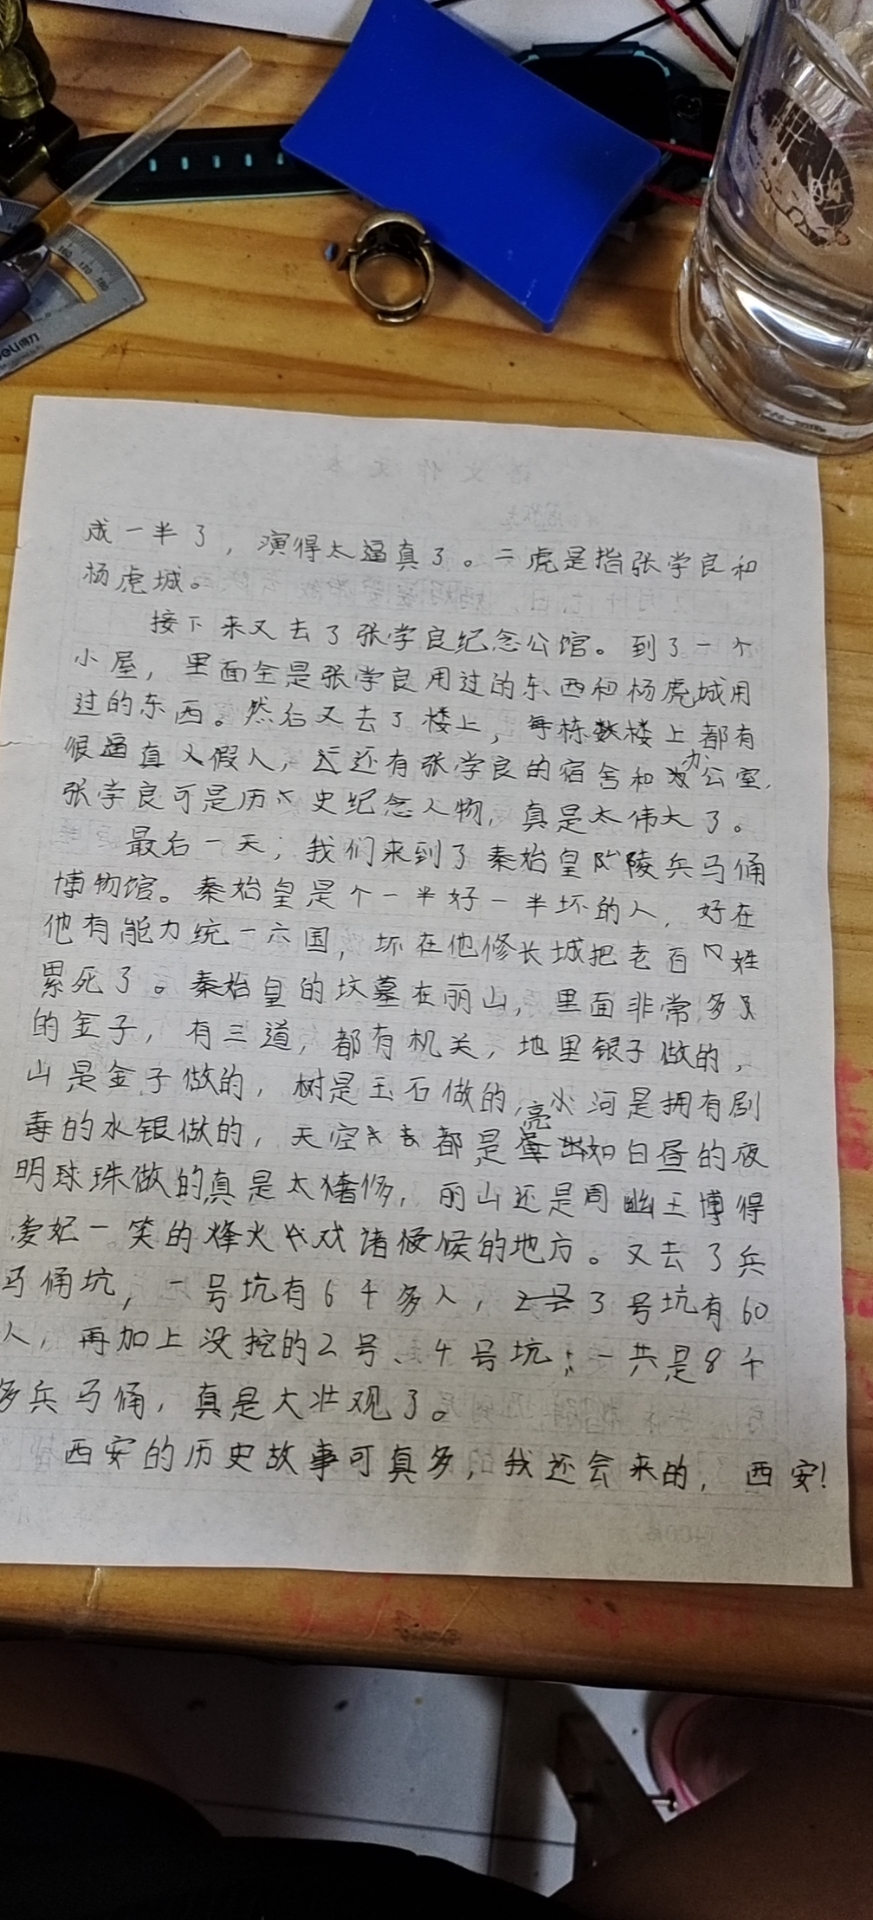 deli得力
成一半了，演得太逼真了。二虎是指张学良和
杨虎城。
接下来又去了张学良纪念公馆。到了一个
小屋，里面全是张学良用过的东西和杨虎城用
过的东西。然后又去了楼上，每栋楼上都有
很逼真假人，还有张学良的宿舍和办公室，
张学良可是历史纪念人物，真是太伟大了。
最后一天，我们来到了秦始皇陵兵马俑
博物馆。秦始皇是个一半好一半坏的人，好在
他有能力统一六国，坏在他修长城把老百姓
累死了。秦始皇的坟墓在丽山，里面非常多
的金子，有三道，都有机关，地里银子做的，
山是金子做的，树是玉石做的，河是拥有剧
毒的水银做的，天空都是亮如白昼的夜
明珠做的真是太奢侈，丽山还是周幽王博得
爱妃一笑的烽火戏诸侯的地方。又去了兵
马俑坑，一号坑有6千多人，3号坑有60
人，再加上没挖的2号、4号坑，一共是8千
多兵马俑，真是大壮观了。
西安的历史故事可真多，我还会来的，西安！